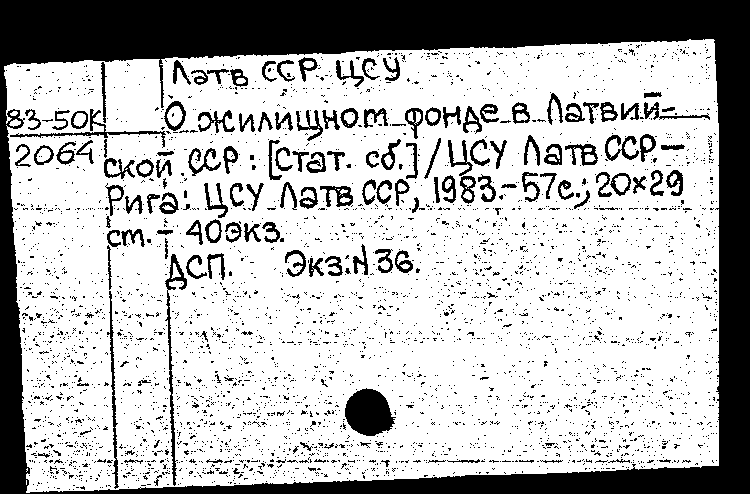 Латв ССР. ЦСУ.
83-50К О жилищном фонде в Латвий-
2064 ской ССР : [Стат. сб.] / ЦСУ Латв ССР. —
Рига: ЦСУ Латв ССР, 1983.- 57с.; 20×29
ст. - 40экз.
ДСП. Экз.N 36.